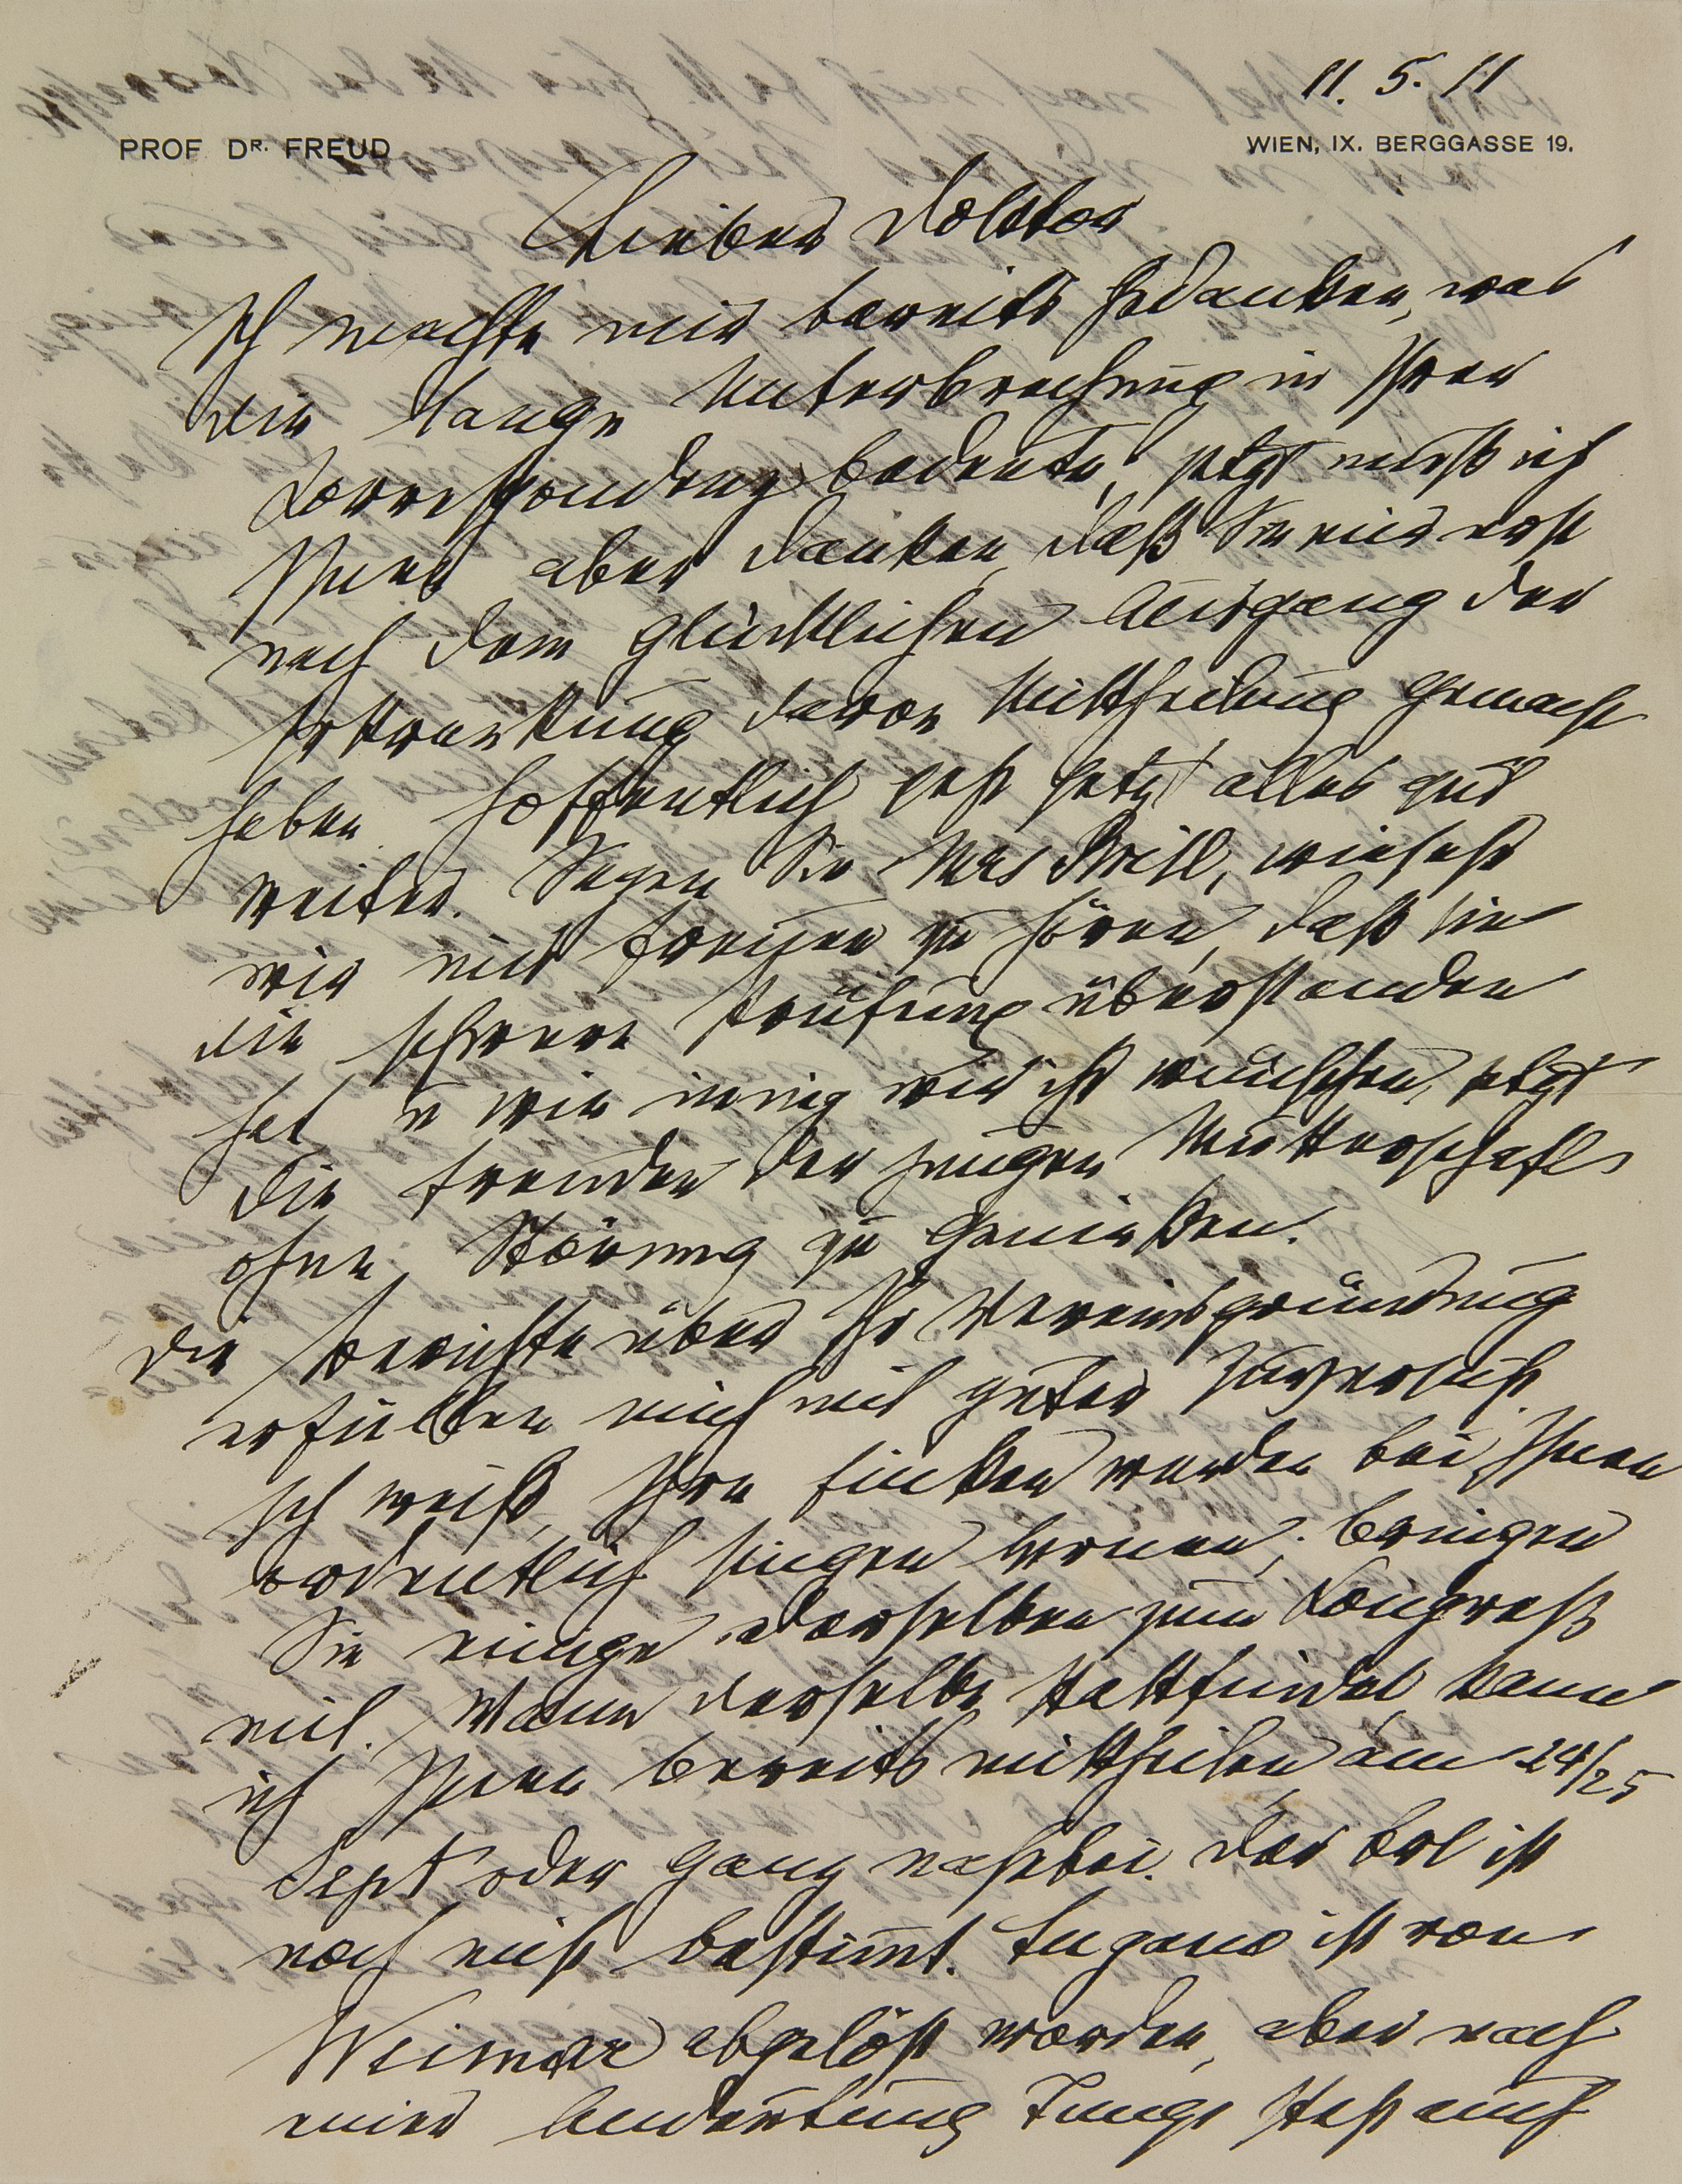 11. 5. 11
PROF. DR. FREUD
WIEN, IX. BERGGASSE 19.
Lieber Doktor
Ich machte mir bereits Gedanken, was
die lange Unterbrechung in Ihrer
Korrespondenz bedeute, jetzt muß ich
Ihnen aber danken, daß Sie mir erst
nach dem glücklichen Ausgang der
Erkrankung davon Mittheilung gemacht
haben. Hoffentlich geht jetzt alles gut
weiter. Sagen Sie Mrs Brill, wie sehr
wir uns freuen zu hören, daß sie
die schwere Prüfung überstanden
hat u wie innig wir ihr wünschen, jetzt
die Freuden der jungen Mutterschaft
ohne Störung zu genießen.
Die Berichte über Ihre Vereinsgründung
erfüllen mich mit guter Zuversicht.
Ich weiß, Ihre Finken werden bei Ihnen
ordentlich singen lernen; bringen
Sie einige derselben zum Kongreß
mit. Wann derselbe stattfindet, kann
ich Ihnen bereits mittheilen, am 24/25
Sept oder ganz nahebei. Der Ort ist
noch nicht bestimmt. Lugano ist von
Weimar abgelöst worden, aber nach
einer Andeutung Jungs steht auch